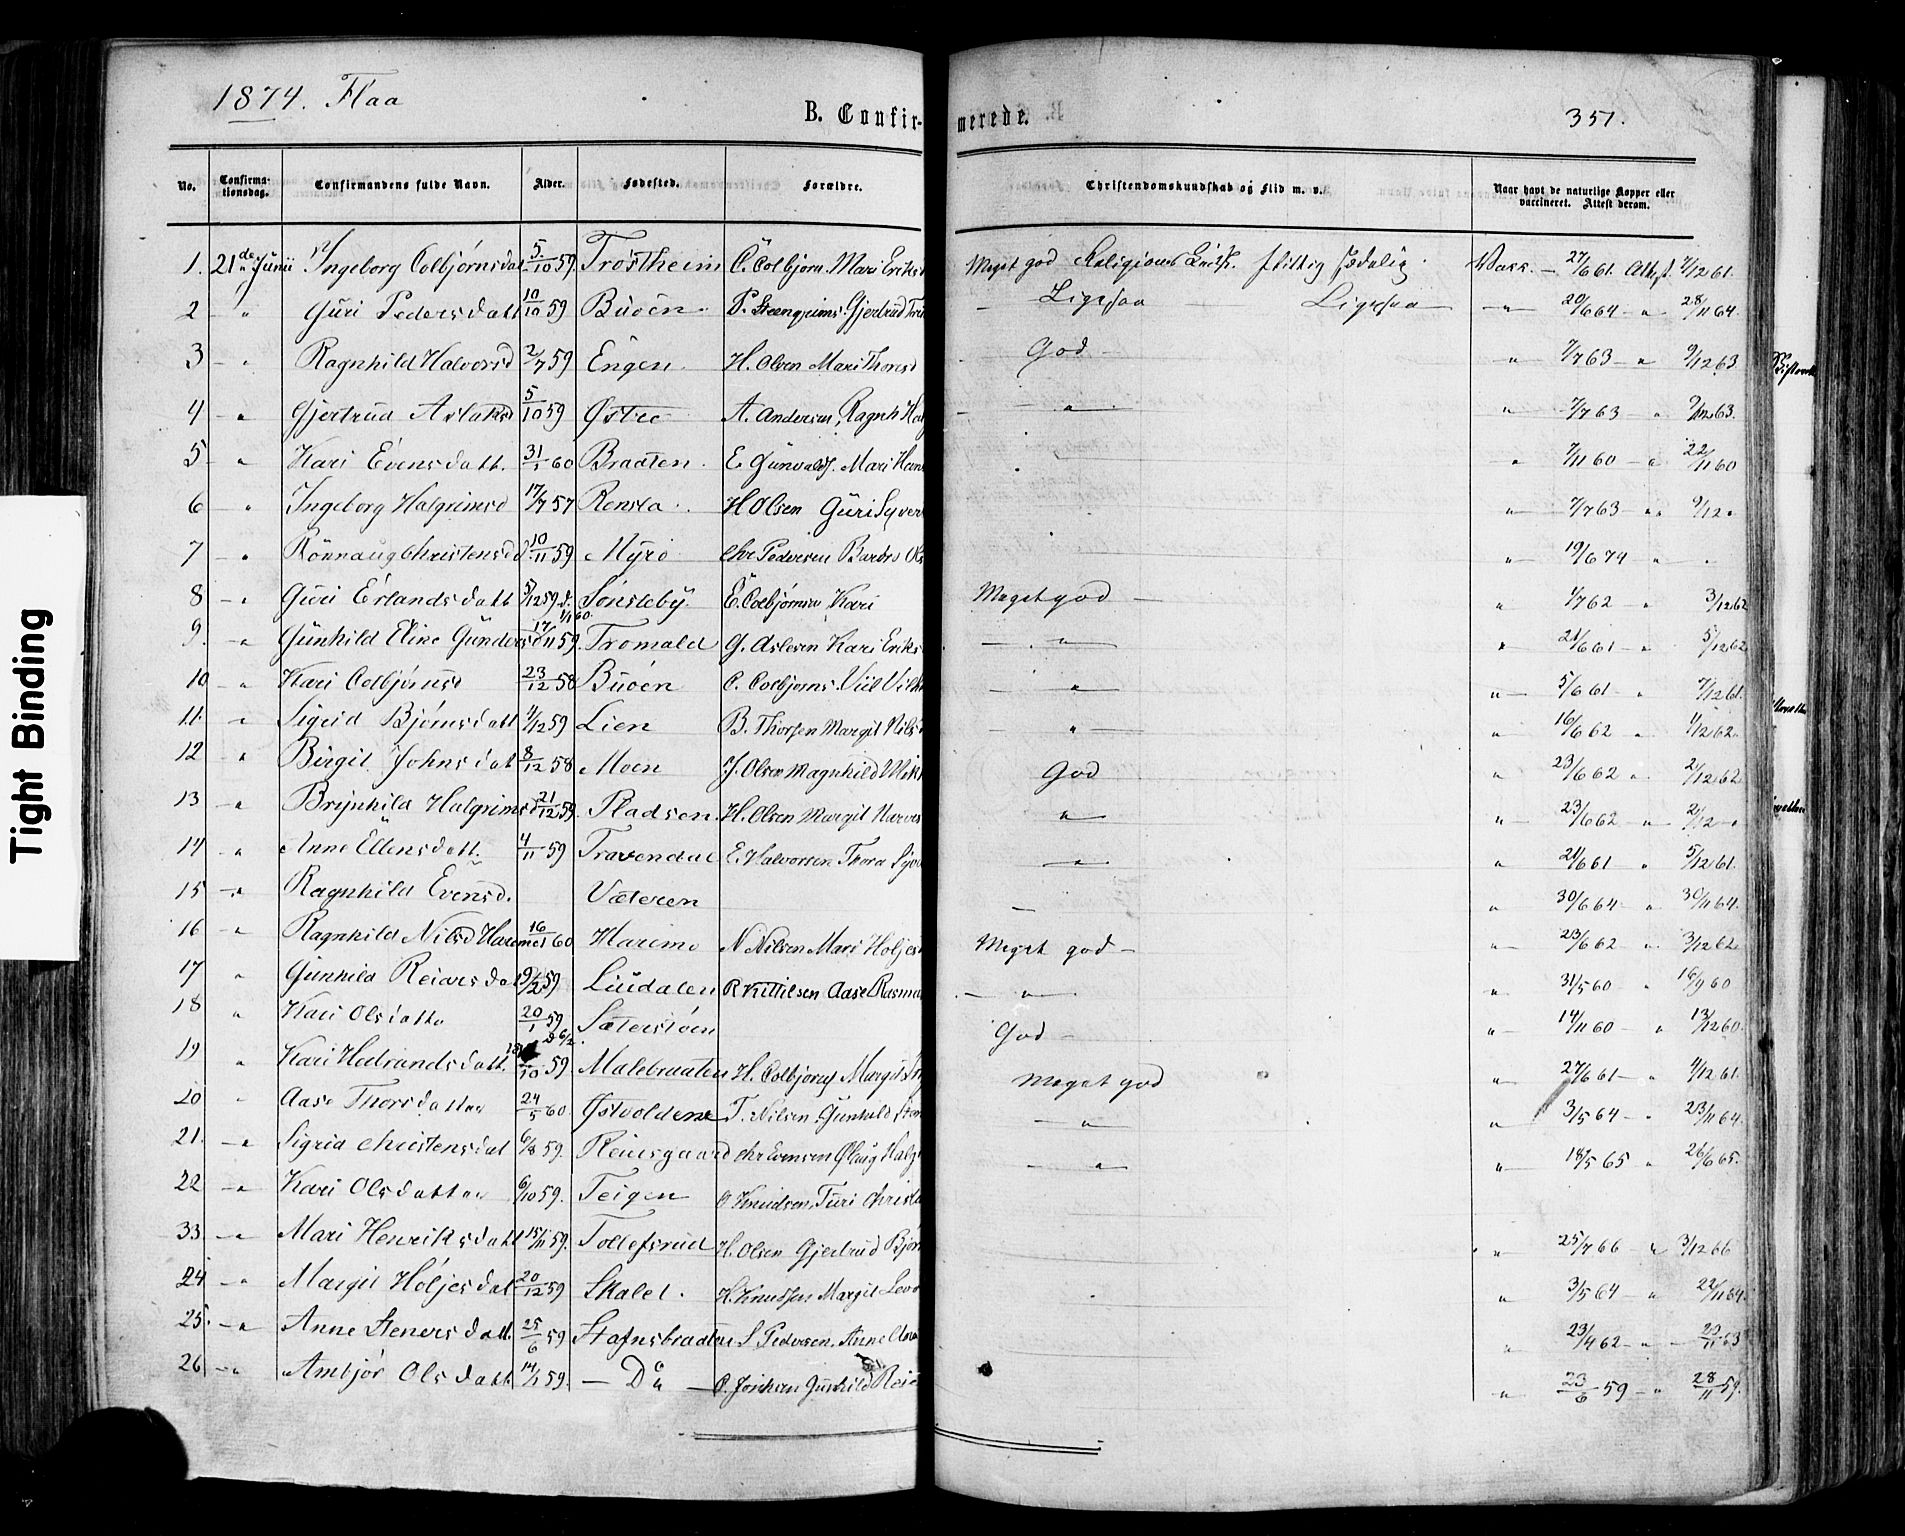 1874. Flaa
B. Confir-
merede.
351.
No. Confirma-tionsdag. Confirmandens fulde Navn. Alder. Fødested. Forældre. Christendomskundskab og Flid m. v. Naar havt de naturlige Kopper eller vaccineret. Attest derom.
1. 21de Junii Ingeborg Colbjørnsdat 5/10 59. Trostheim C. Colbjørn. Mari Eriks Meget god Religions flittig sædelig. Vacc. — 27/6 61. Attest. 4/12 61.
2 - " Guri Pedersdatt 10/10 59 Buøen. P. Steengrims. Gjertrud — Ligesaa — Ligesaa — " 20/6 64 - " 28/11 64.
3 - " Ragnhild Halvorsd 2/7 59 Engen. H. Olsen Mari Thoresd God — " 7/7 63 - " 9/12 63
4 - " Gjertrud Aslaksd 5/10 59 Østre A. Andersen, Ragnh — " — " 7/7 63 - " 9/12 63.
5 - " Kari Evensdatt. 31/1 60 Braaten. E Gunvalds. Mari Hans " 7/11 60 - " 22/11 60
6 - " Ingeborg Halgrimsd 17/7 57 Rensla. H Olsen Guri Syver " 7/7 63 - " 9/12 "
7 - " Rønnaug Christensd 10/11 59 Myro Chr Pedersen Barbro " 19/6 74 "
8 - " Guri Erlandsdatt 5/12 59 d. 1/1 60 Sønsteby. E. Colbjørnsen Kari Meget god — " 1/7 62 " 3/12 62
9. - " Gunhild Eline Gunders 17/11 59. Tromald G. Aslesen Kari Eriks — " — " 21/6 61 - " 5/12 62
10 - " Kari Colbjørnsd 23/12 58 Buøen C. Colbjørns. — " — " 5/6 61 - " 7/12 61.
11. - " Sigrid Bjørnsdatt 4/12 59 Lien B. Thorsen Margit Nils — " — " 16/6 62 " 1/12 62
12 - " Birgit Johnsdat 8/12 58 Moen J. Olsen Magnhild God " 23/6 62 " 2/12 62
13 - " Brynhild Halgrimsd 21/12 59. Pladsen. H. Olsen Margit — " — " 23/6 62 - " 2/12 - "
14 - " Anne Ellensdatt. 4/11 59 Travendal E. Halvorsen Thora — " — " 21/6 61 " 5/12 61.
15 - " Ragnhild Evensd. Væteren — " 30/6 64 - " 30/11 64.
16 - " Ragnhild Nilsd 16/1 60 Harime N Nilsen Mari Holjes Meget god — " 23/6 62 - " 3/12 62
17 " Gunhild Reiarsdat 9/2 59 Liudalen R Kittilsen Aase Rasm — " — " 31/5 60 " 16/9 60
18 " Kari Olsdatte 20/1 59 Sæterstøen God — " 14/11 60 " 13/12 60.
19 " Kari Halvandsdatt. 10 59. Malebraaten H. Colbjørns Margit Meget god " 27/6 61 - " 4/12 61.
20 " Aase Thorsdatter 24/5 60. Østvoldene T. Nilsen, Gunhild — " — " 3/5 64 - " 23/11 64.
21. - " Sigrid Christensdat 6/8 59. Reiersgaard Chr Evensen — " — " 18/5 65 " 26/6 65.
22 - " Kari Olsdatter 6/10 59. Teigen O Knudsen, Turi Christ
33 - " Mari Henriksdatt 15/11 59. Tollefsrud H. Olsen Gjertrud Bjør " 25/7 66 - " 3/12 66
24 - " Margit Holjesdat 20/12 59 Skalet. H. Knudsen Margit " 3/5 64 - " 22/11 64.
25. - " Anne Stenersdatt. 25/6 59 Stafnsbraaten S Pedersen. Anne " 23/4 62 - " 20/11 63
26 - " Ambjør Olsdatt 14/1 59. — Do — Gunhild Reie " 23/6 59 - " 28/11 59.
Tight Binding